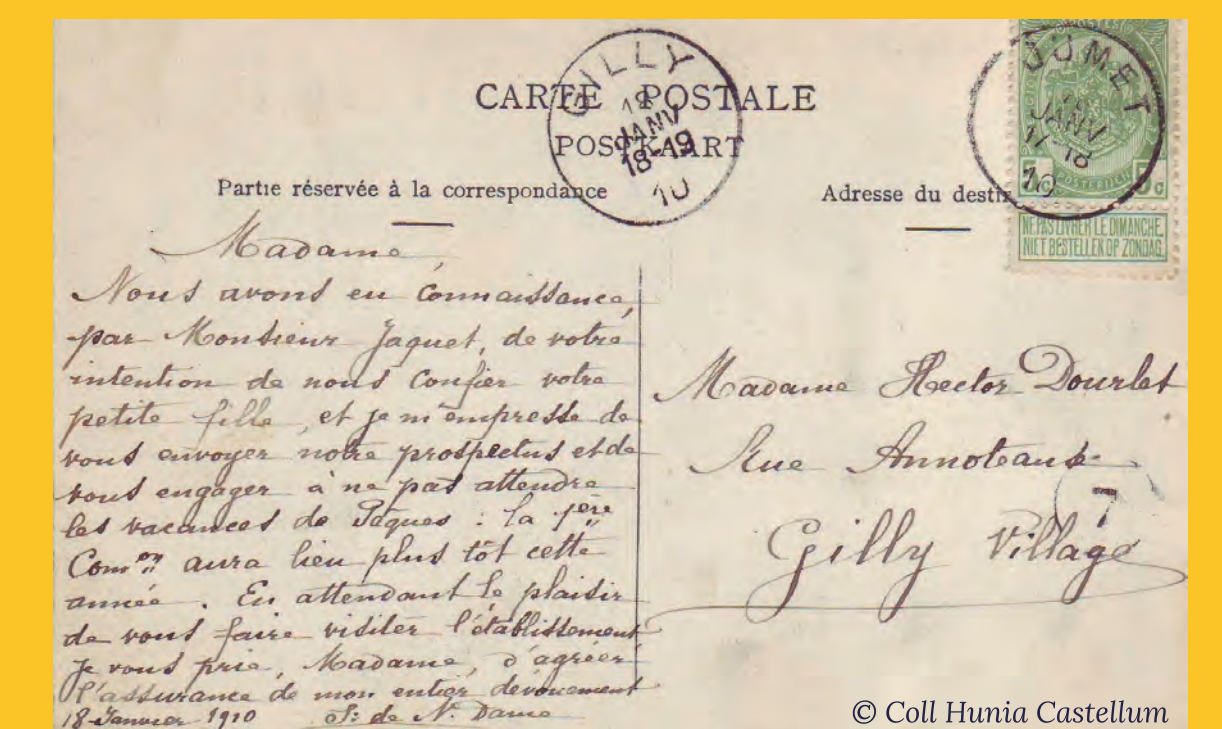 CARTE POSTALE
POSTKAART
GILLY
18
JANV
18-19
10
JUMET
18
JANV
17-18
10
Partie réservée à la correspondance
Adresse du destin
NE PAS LIVRER LE DIMANCHE
NIET BESTELLEN OP ZONDAG
Madame,
Nous avons eu connaissance,
par Monsieur Jaquet, de votre
intention de nous confier votre
petite fille, et je m'empresse de
vous envoyer notre prospectus et de
vous engager à ne pas attendre
les vacances de Pâques : la 1ère
Comon aura lieu plus tôt cette
année. En attendant le plaisir
de vous faire visiter l'établissement
Je vous prie, Madame, d'agréer
l'assurance de mon entier dévouement
18 Janvier 1910 Sr de N. Dame
Madame Hector Dourlet
Rue Annoteaux
7
Gilly Village
© Coll Hunia Castellum